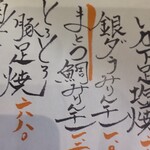 いか下足塩焼
銀ダラみりん干
まとう鯛みりん干
とろとろ
豚足焼 六八〇